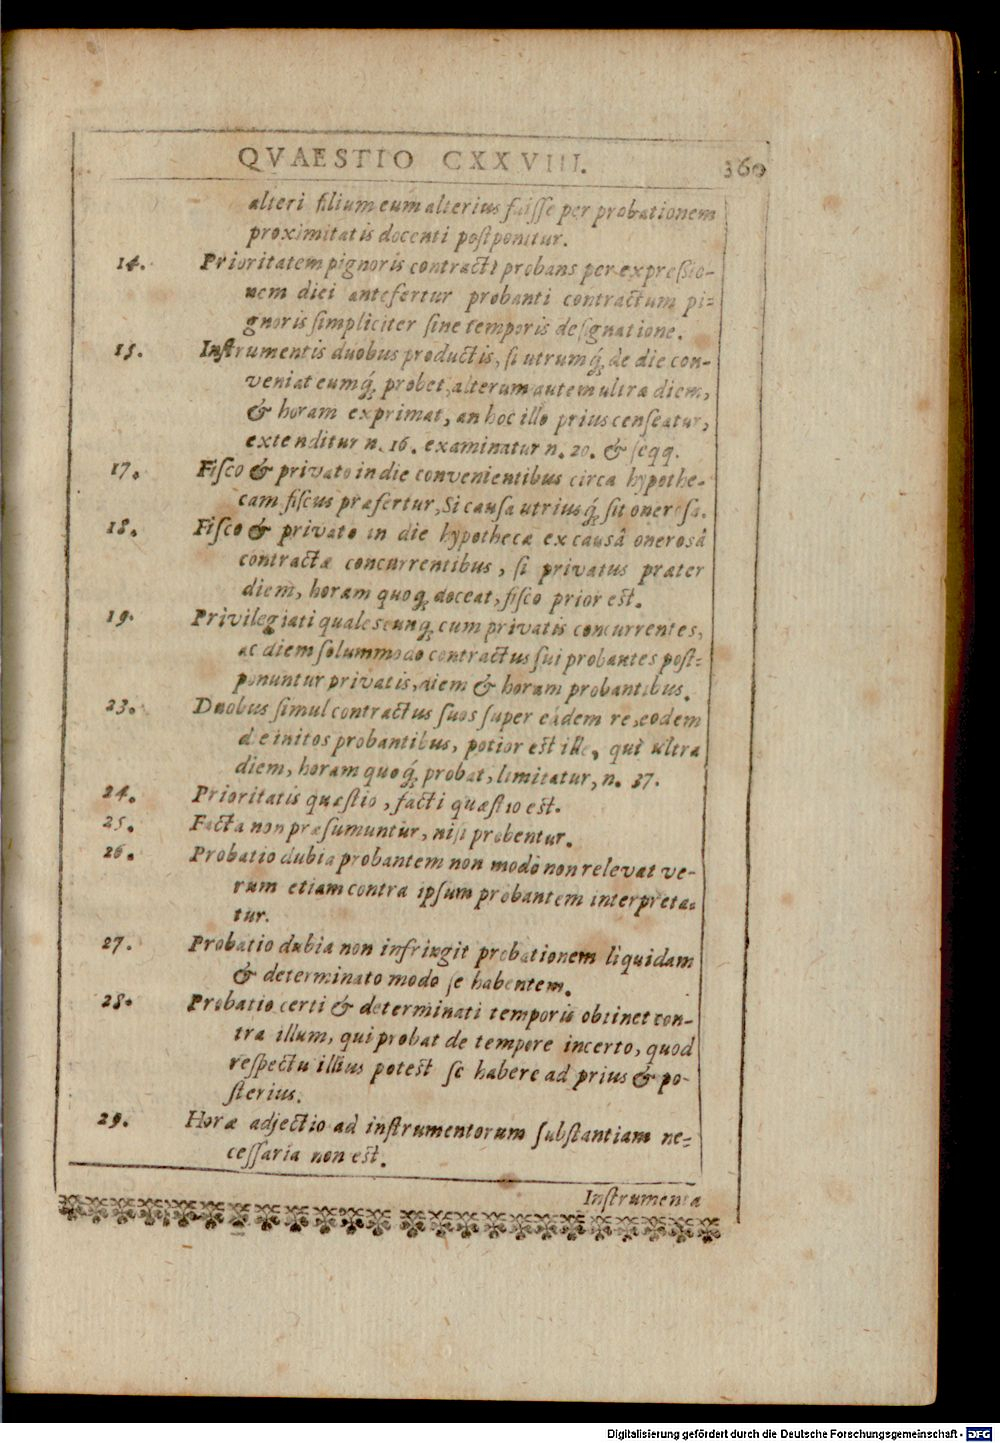 QVAESTIO CXXVIII. 360
alteri filium eum alterius fuiſſe per probationem
proximitatis docenti poſtponitur.
14. Prioritatem pignoris contracti probans per expreſsio-
nem diei antefertur probanti contractum pi-
gnoris ſimpliciter ſine temporis deſignatione.
15. Inſtrumentis duobus productis, ſi utrumq́; de die con-
veniat eumq́; probet, alterum autem ultra diem,
& horam exprimat, an hoc illo prius cenſeatur,
extenditur n. 16. examinatur n. 20. & ſeqq.
17. Fiſco & privato in die convenientibus circa hypothe-
cam fiſcus præfertur, Si cauſa utriusq́; ſit oneroſa.
18. Fiſco & privato in die hypothecæ ex causâ onerosâ
contractæ concurrentibus, ſi privatus præter
diem, horam quoq; doceat, fiſco prior est.
19. Privilegiati qualescunq; cum privatis concurrentes,
ac diem ſolummodo contractus ſui probantes poſt-
ponuntur privatis, diem & horam probantibus.
23. Duobus ſimul contractus ſuos ſuper eâdem re, eodem
die initos probantibus, potior est ille, qui ultra
diem, horam quoq́; probat, limitatur, n. 37.
24. Prioritatis quæstio, facti quæstio est.
25. Facta non præſumuntur, niſi probentur.
26. Probatio dubia probantem non modò non relevat ve-
rum etiam contra ipſum probantem interpreta-
tur.
27. Probatio dubia non infringit probationem liquidam
& determinato modo ſe habentem.
28. Probatio certi & determinati temporis obtinet con-
tra illum, qui probat de tempore incerto, quod
reſpectu illius potest ſe habere ad prius & po-
ſterius.
29. Horæ adjectio ad inſtrumentorum ſubſtantiam ne-
ceſſaria non est.
Inſtrumenta
Digitalisierung gefördert durch die Deutsche Forschungsgemeinschaft - DFG